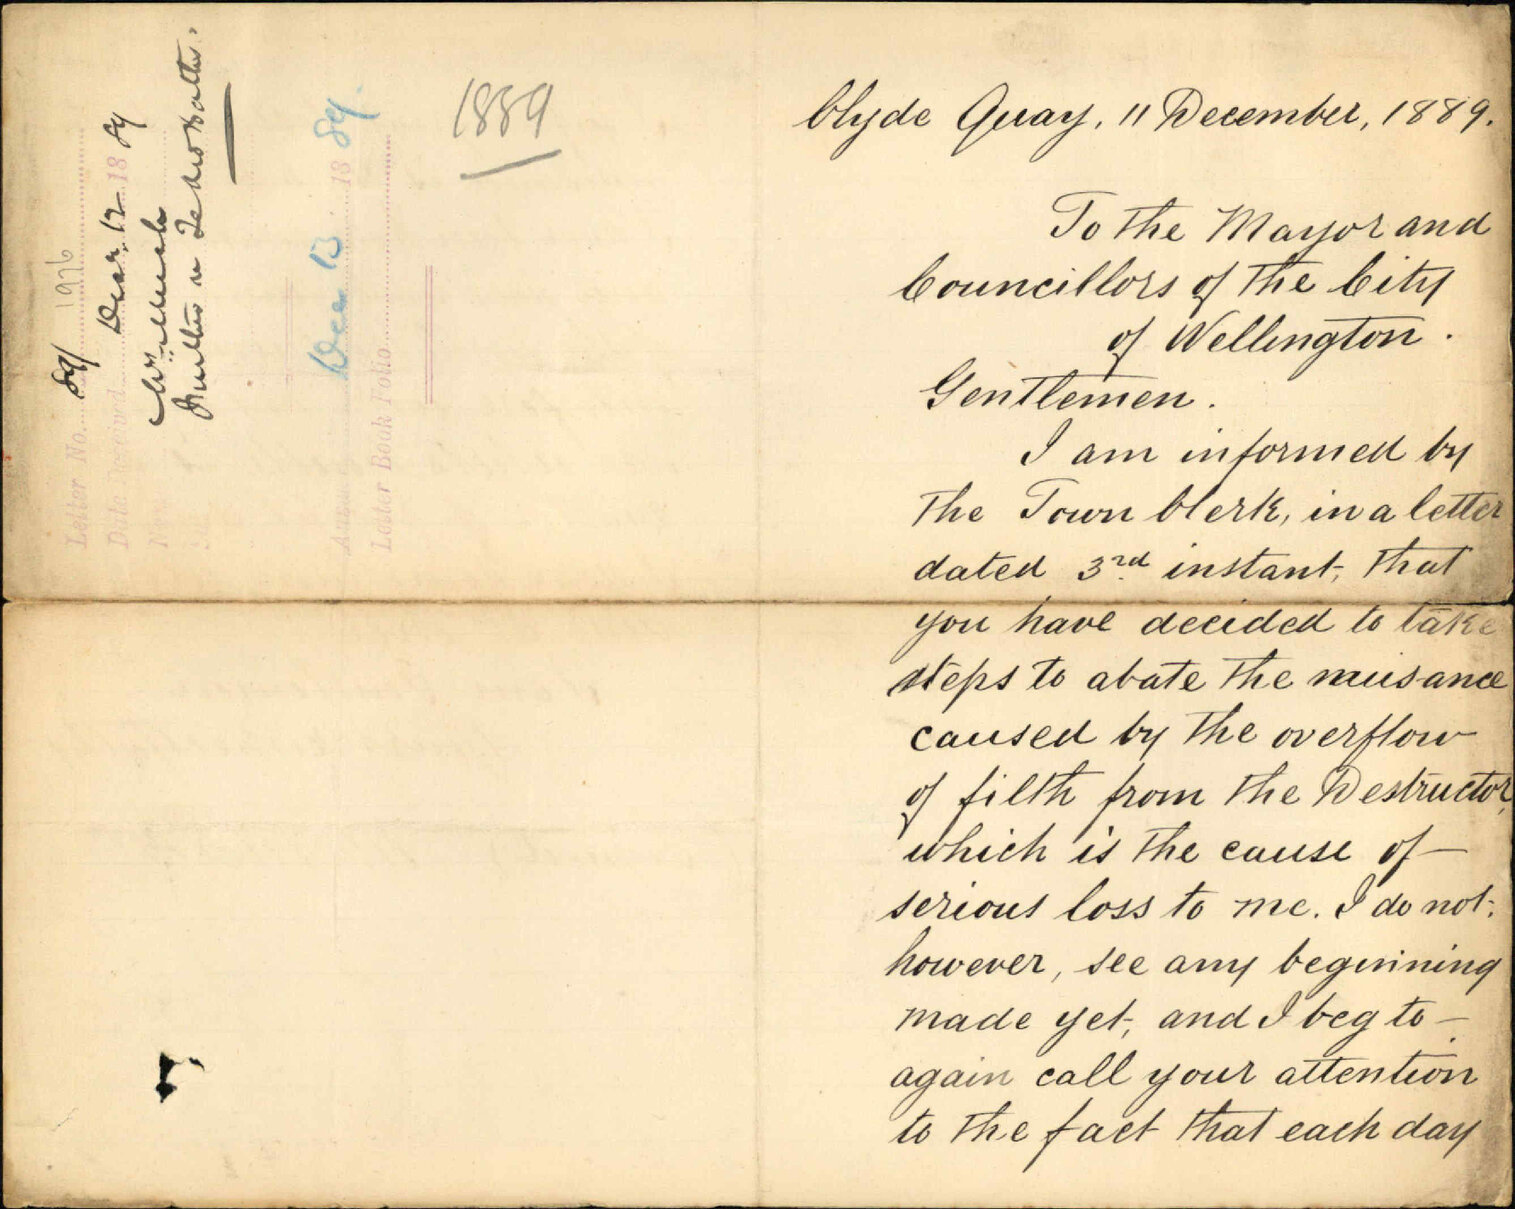 Letter No. 89/1976
Date Received Decr. 12 1889
Wm. Meek
Further re Te Aro Baths.
Answ Dec 13 1889.
Letter Book Folio
1889
Clyde Quay, 11 December, 1889.
To the Mayor and
Councillors of the City
of Wellington.
Gentlemen.
I am informed by
the Town Clerk, in a letter
dated 3rd instant, that
you have decided to take
steps to abate the nuisance
caused by the overflow
of filth from the Destructor,
which is the cause of
serious loss to me. I do not,
however, see any beginning
made yet, and I beg to
again call your attention
to the fact that each day